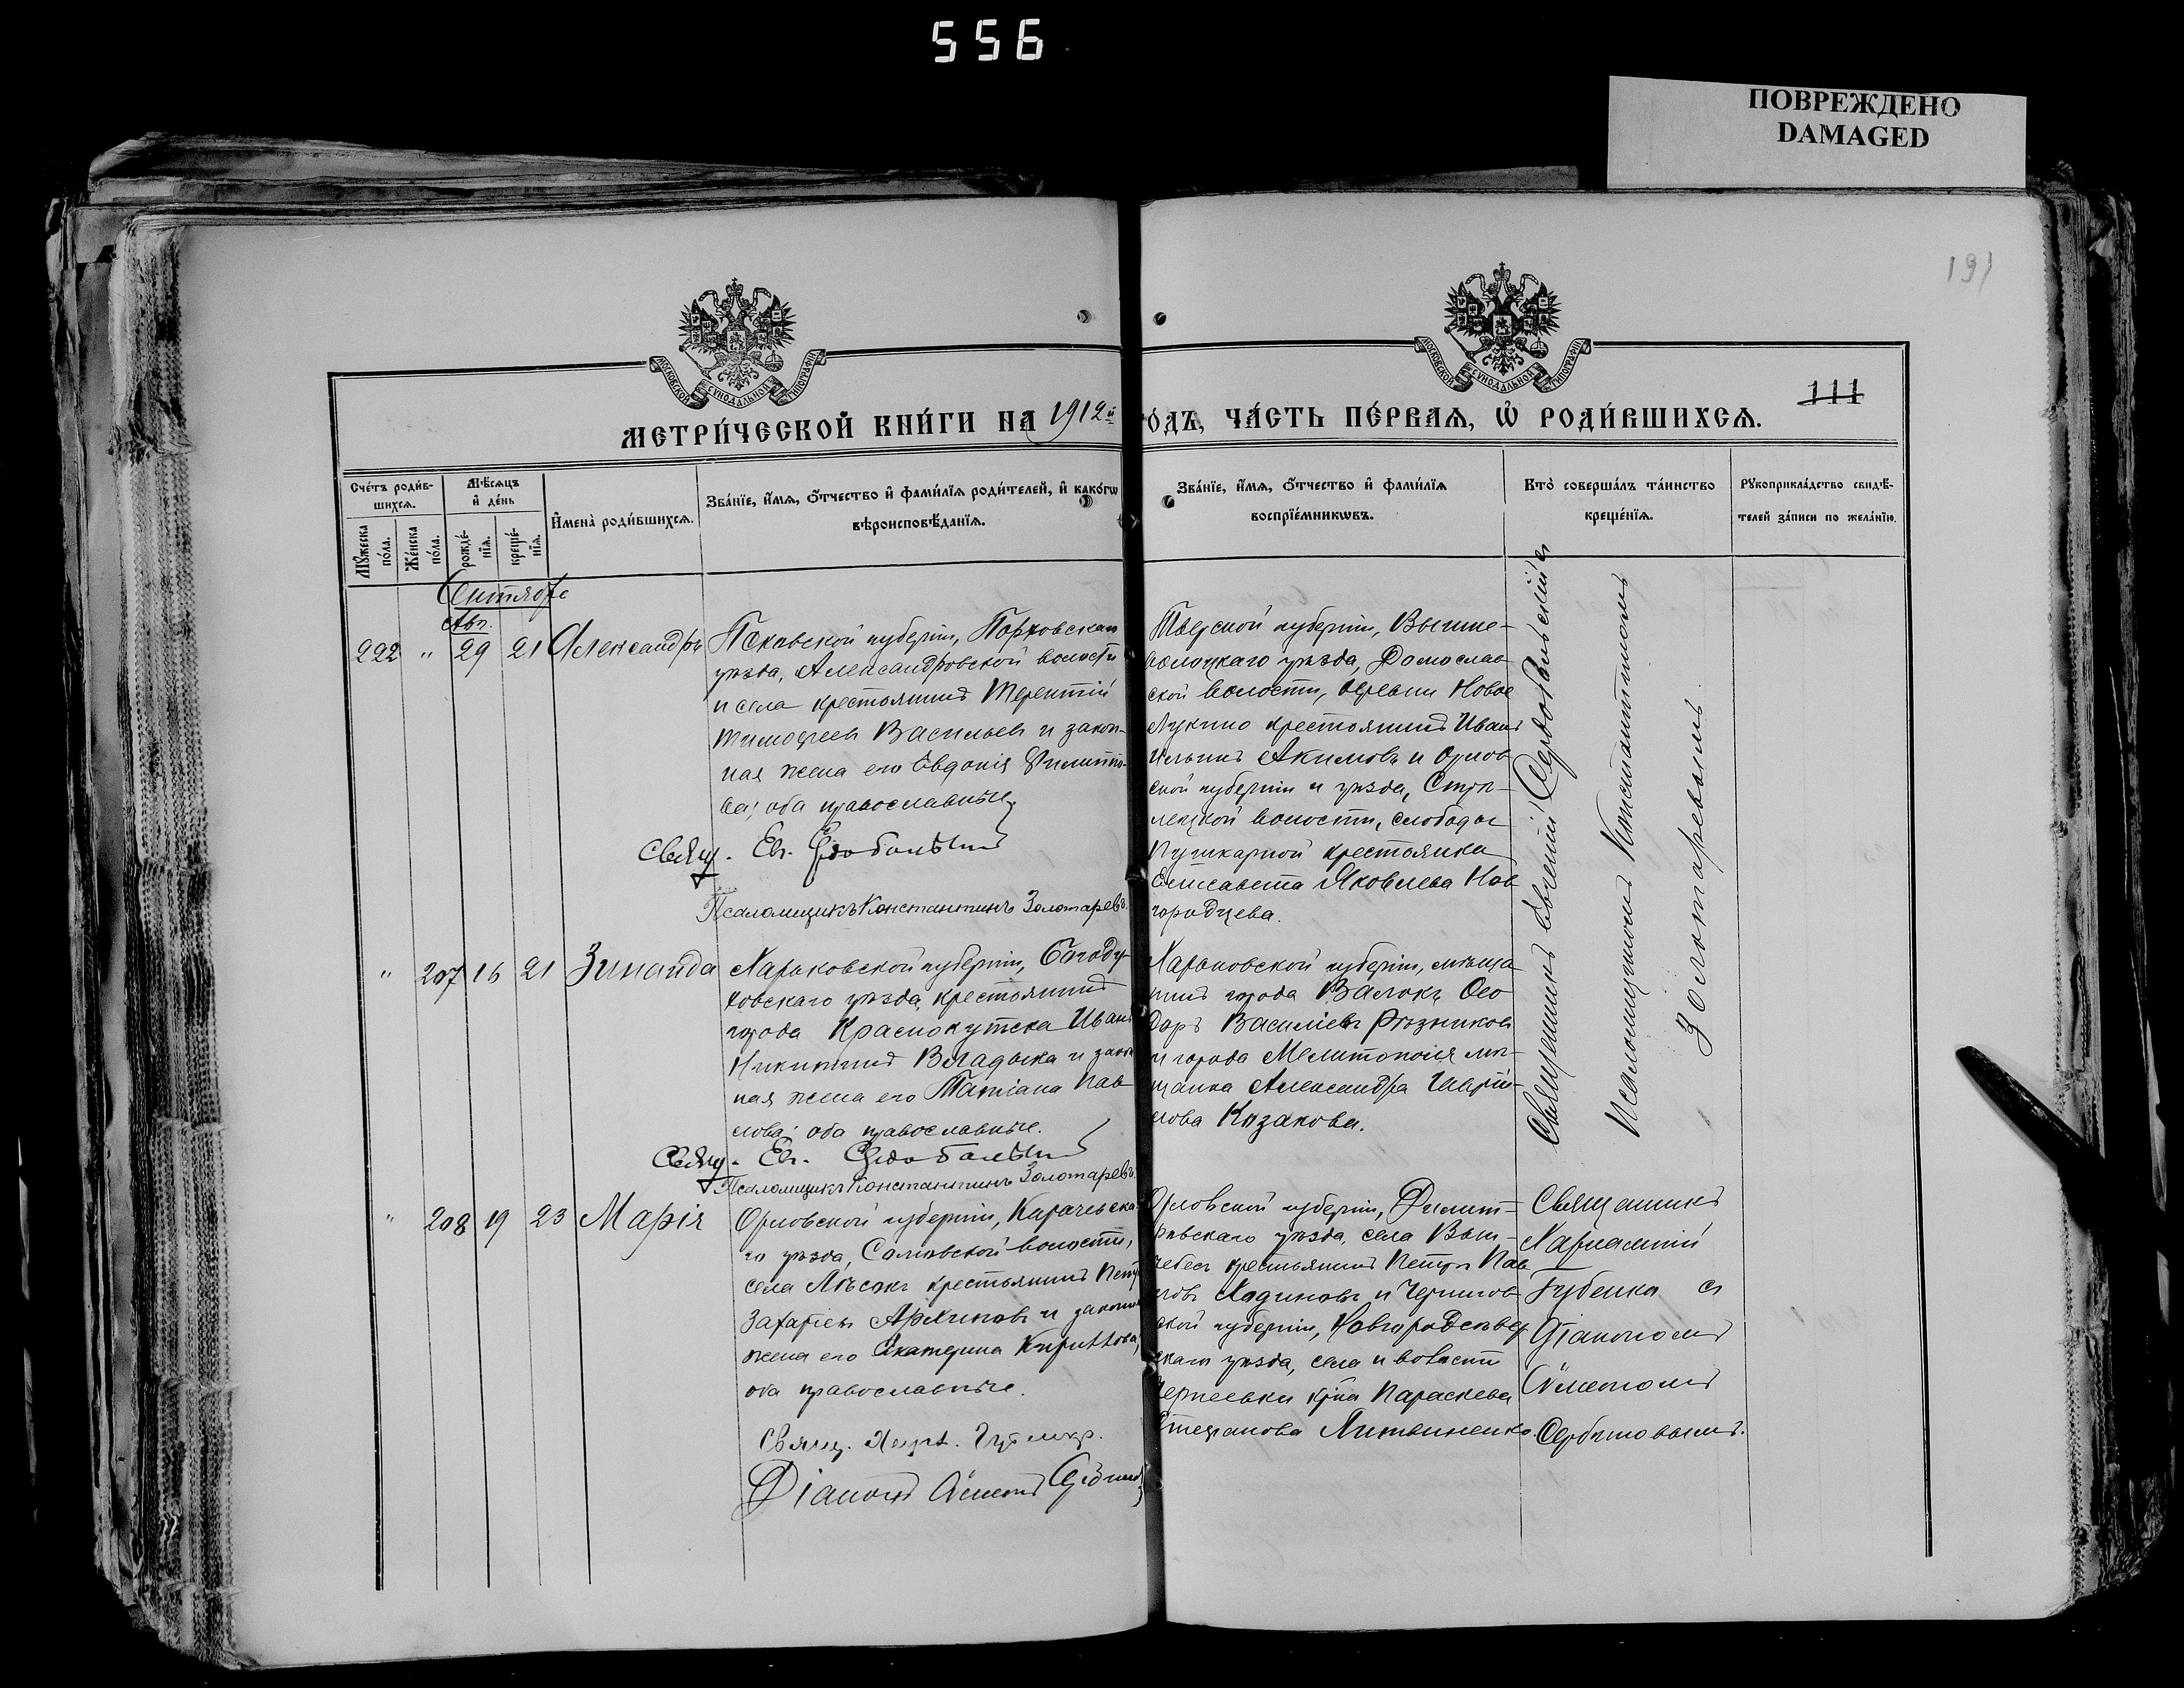 556
ПОВРЕЖДЕНО
DAMAGED
191
МОСКОВСКОЙ СѴНОДАЛЬНОЙ ТИПОГРАФІИ
МОСКОВСКОЙ СѴНОДАЛЬНОЙ ТИПОГРАФІИ
111
МЕТРИ́ЧЕСКОЙ КНИ́ГИ НА 1912й
О́ДЪ, ЧА́СТЬ ПЕ́РВАЯ, Ѡ РОДИ́ВШИХСЯ.
Сче́тъ роди́в-
шихся.
Мѣсяцъ
и де́нь
Му́жеска по́ла.
Же́нска по́ла.
рожде́-нїя.
креще́-нїя.
Имена̀ роди́вшихся.
Зва́нїе, и́мя, о́тчество и фами́лїя роди́телей, и како́гѡ
вѣроисповѣ́данїя.
Зва́нїе, и́мя, о́тчество и фами́лїя
воспрїе́мникѡвъ.
Кто̀ соверша́лъ та́инство
креще́нїя.
Рꙋкоприкла́дство свидѣ́-
телей за́писи по жела́нїю.
Сентябрь
Авг.
222 " 29 21 Александръ
Псковской губерніи, Порховскаго
уѣзда, Александровской волости
и села крестьянинъ Терентій
Тимофеевъ Васильевъ и закон-
ная жена его Евдокія Филиппо-
ва; оба православные.
Свящ. Ев.
Псаломщикъ Константинъ Золотаревъ.
Тверской губерніи, Вышне-
волоцкаго уѣзда, Домослав-
ской волости, деревни Новое
Лукино крестьянинъ Иванъ
Ильинъ Акимовъ и Орлов-
ской губерніи и уѣзда, Стрѣ-
лецкой волости, слободы
Пушкарной крестьянка
Елисавета Яковлева Нов-
городцева.
Священникъ Евгеній Сердобольскій съ
Псаломщикомъ Константиномъ
Золотаревымъ.
" 207 16 21 Зинаида
Харьковской губерніи, Богоду-
ховскаго уѣзда, крестьянинъ
города Краснокутска Иванъ
Никитинъ Владыка и закон-
ная жена его Татіана Пав-
лова; оба православные.
Свящ. Ев.
Псаломщикъ Константинъ Золотаревъ.
Харьковской губерніи, мѣща-
нинъ города Валокъ Ѳео-
доръ Василіевъ Рѣзниковъ
и города Мелитополя мѣ-
щанка Александра Гаврі-
лова Казакова.
" 208 19 23 Марія
Орловской губерніи, Карачевска-
го уѣзда, волости,
села Лѣсокъ крестьянинъ Петръ
Захаріевъ и законная
жена его Екатерина Кириллова,
оба православные.
Свящ.
Діаконъ Симеонъ
Орловской губерніи, Дмит-
ровскаго уѣзда, села
крестьянинъ Петръ Пав-
ловъ и Чернигов-
ской губерніи, Новгородсѣвер-
скаго уѣзда, села и волости
кр-ка Параскева
Стефанова Литвиненко.
Священникъ
Харлампій
Губенко съ
Діакономъ
Симеономъ